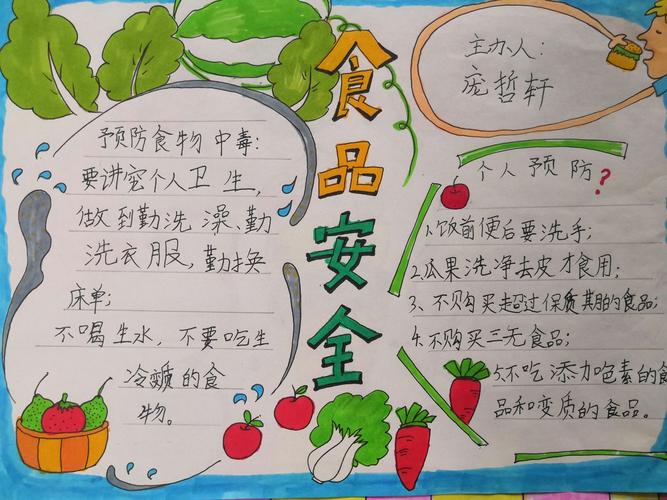 食品安全
主办人:
庞哲轩
预防食物中毒:
要讲究个人卫生,
做到勤洗澡、勤
洗衣服,勤换
床单;
不喝生水,不要吃生
冷变质的食
物。
个人预防?
1.饭前便后要洗手;
2.瓜果洗净去皮才食用;
3、不购买超过保质期的食品;
4.不购买三无食品;
5.不吃添加色素的食
品和变质的食品。